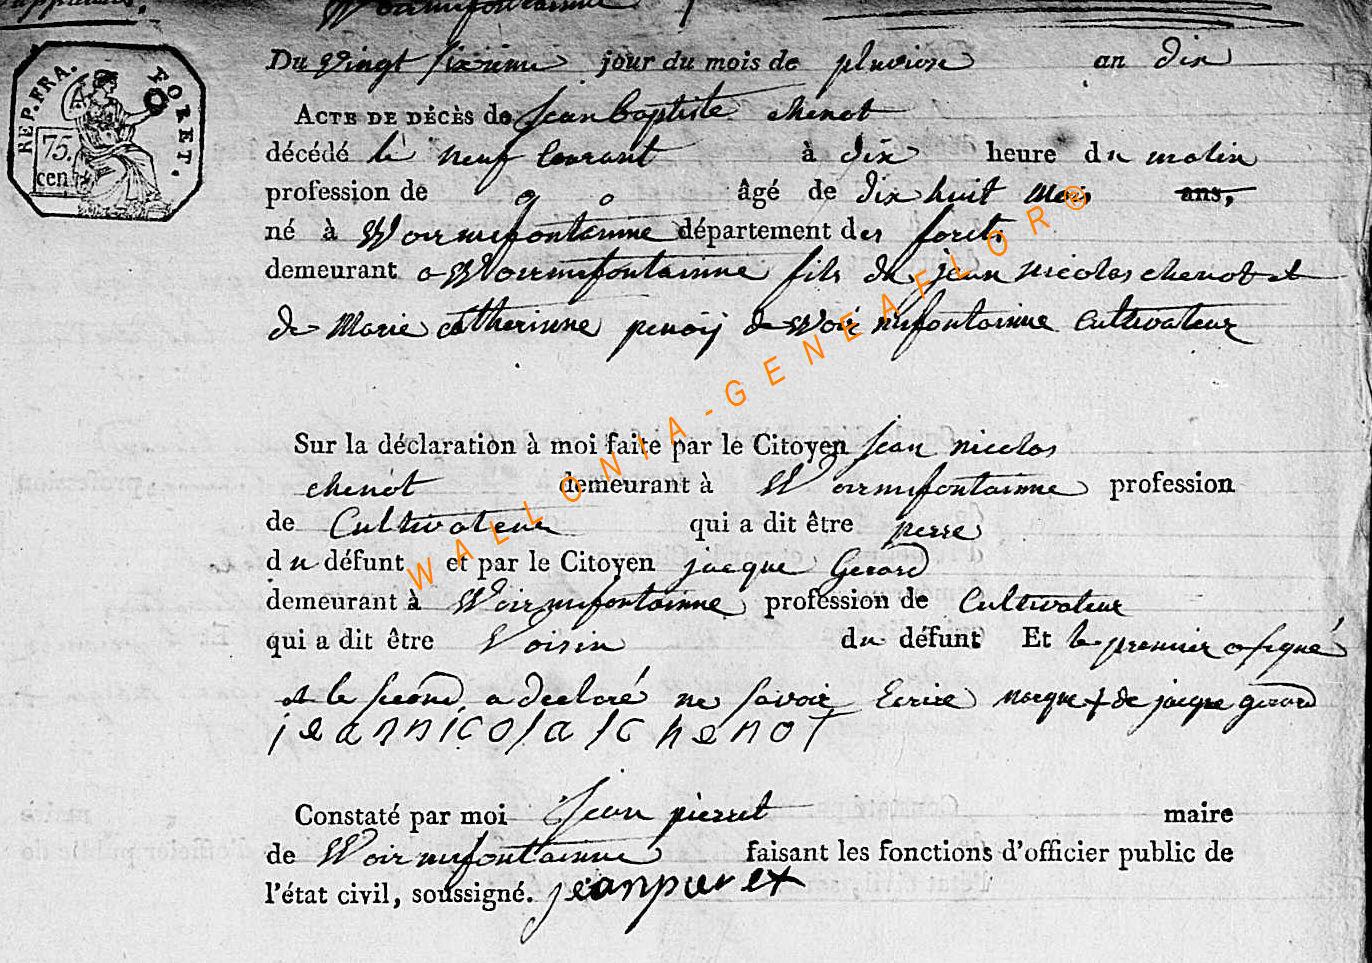 REP. FRA. FORET.
75. cen
Du Vingt sixieme jour du mois de pluviose an dix
ACTE DE DÉCÈS de Jean baptiste chenot
décédé le neuf Courant à dix heure du matin
profession de âgé de dix huit mois ans,
né à Woirmefontainne département des forets
demeurant a Woirmefontainne fils de jean nicolas chenot et
de Marie catherinne de Woirmefontainne Cultivateur
Sur la déclaration à moi faite par le Citoyen Jean nicolas
chenot demeurant à Woirmefontainne profession
de Cultivateur qui a dit être perre
du défunt et par le Citoyen jacque Gerard
demeurant à Woirmefontainne profession de Cultivateur
qui a dit être Voisin du défunt Et le premier a signé
et le second a declaré ne savoir Ecrire marque + de jacque gerard
jean nicolas chenot
Constaté par moi Jean pierret maire
de Woirmefontainne faisant les fonctions d'officier public de
l'état civil, soussigné. jean pieret
WALLONIA-GENEAFLOR®